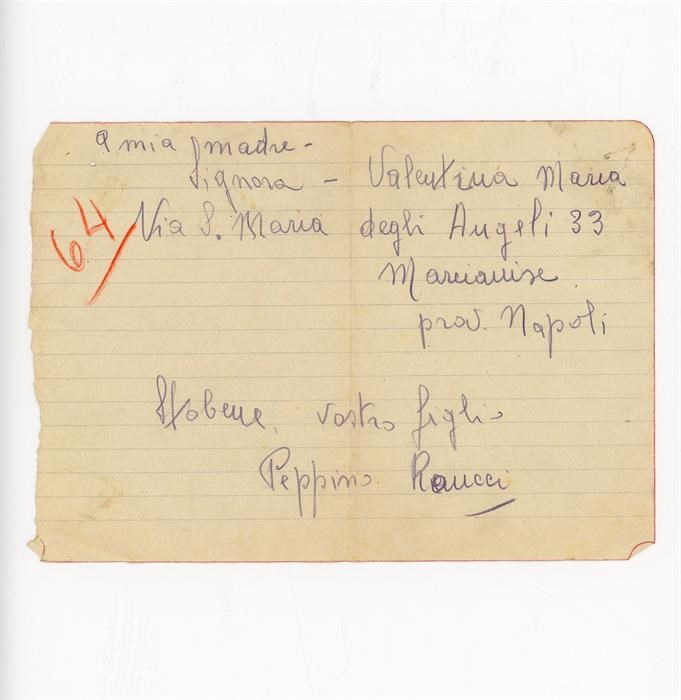 A mia madre -
Signora - Valentina Maria
64 / Via S. Maria degli Angeli 33
Marcianise
prov. Napoli
Sto bene, vostro figlio
Peppino Raucci